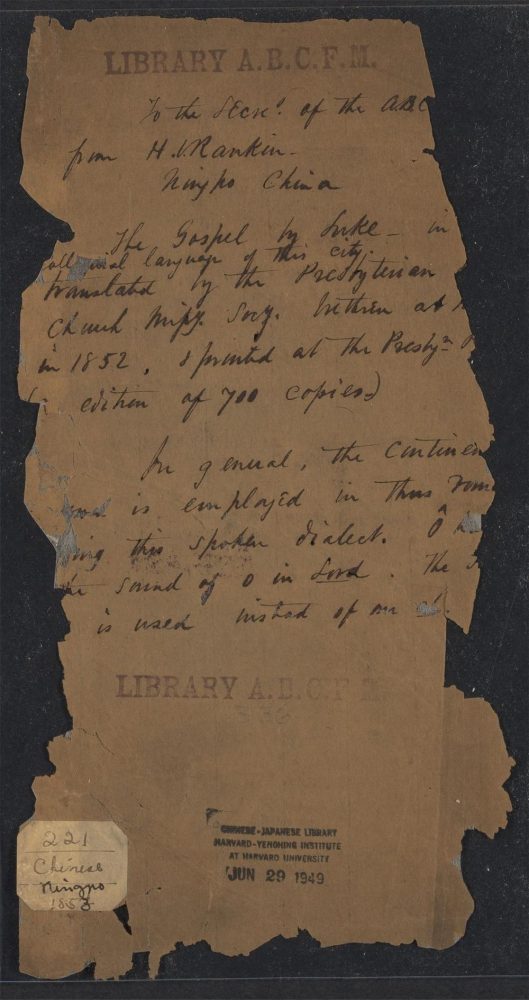 LIBRARY A.B.C.F.M.
To the Secrey. of the A.B.C
from H.V. Rankin.
Ningpo China
The Gospel by Luke - in
colloquial language of this city.
translated by the Presbyterian
Church Missy. Socy. brethren at
in 1852. & printed at the Presbyn.
edition of 700 copies.)
In general, the continen
is employed in thus roma
ing this spoken dialect. Ô h
the sound of o in Lord. The
is used instead of an
LIBRARY A.B.C.F.M.
336
CHINESE-JAPANESE LIBRARY
HARVARD-YENCHING INSTITUTE
AT HARVARD UNIVERSITY
JUN 29 1949
221
Chinese
Ningpo
1853